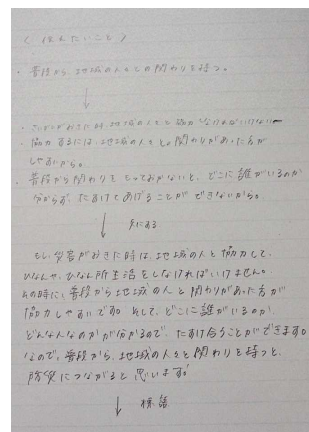 〈 伝えたいこと 〉
・普段から、地域の人々との関わりを持つ。
↓
がおきた時、地域の人々と協力しなければいけない
・協力するには、地域の人々との関わりがあった方が
しやすいから。
・普段から関わりをもっておかないと、どこに誰がいるのか
分からず、たすけてあげることができないから。
↓ 文にする
もし災害がおきた時は、地域の人と協力して、
ひなんや、ひなん所生活をしなければいけません。
その時に、普段から地域の人と関わりがあった方が
協力しやすいです。そして、どこに誰がいるのか、
どんな人なのかが分かるので、たすけ合うことができます。
なので、普段から、地域の人々と関わりを持つと、
防災につながると思います。
↓ 標語